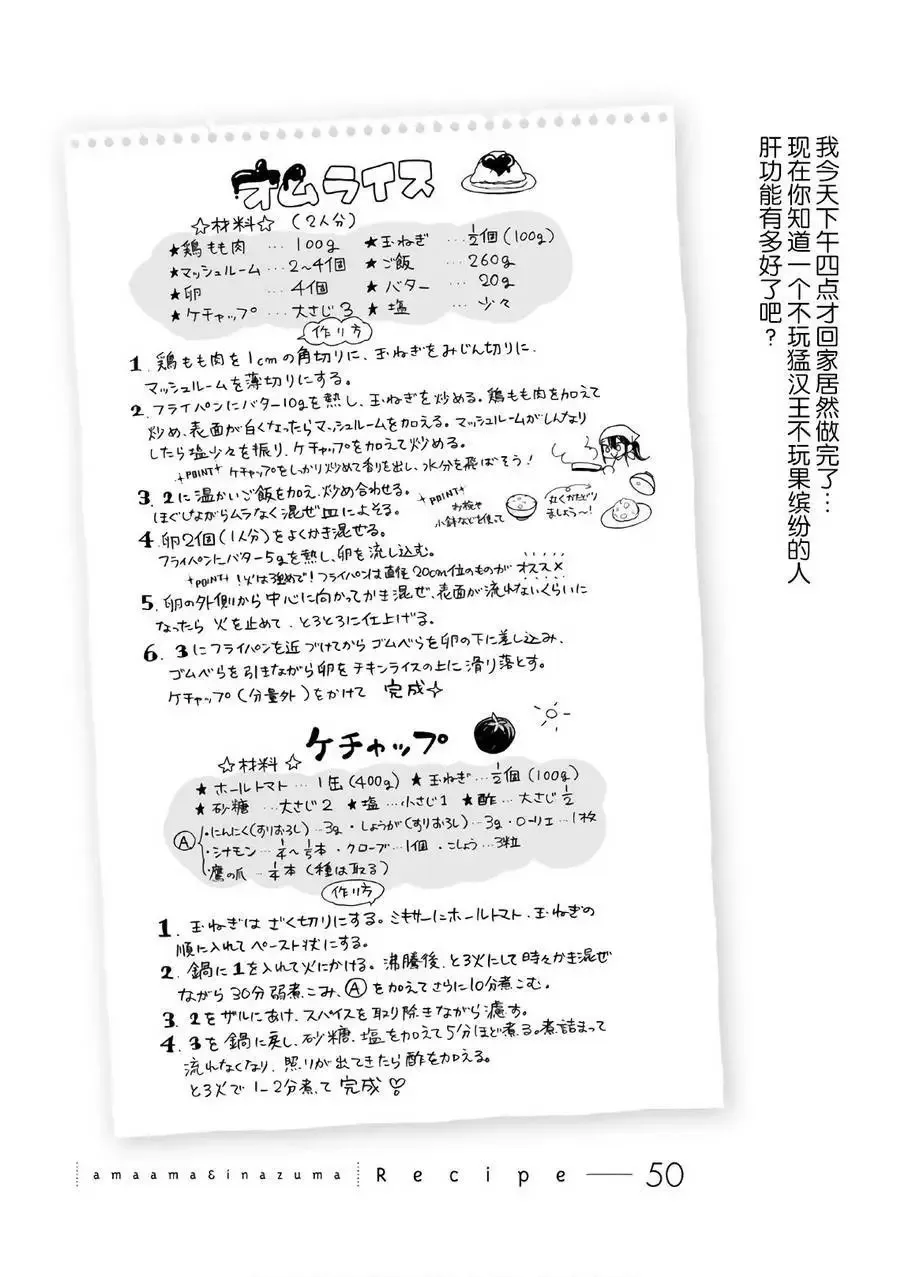 オムライス
☆材料☆ (2人分)
★鶏もも肉 … 100g ★玉ねぎ … 1/2個(100g)
★マッシュルーム … 2〜4個 ★ご飯 … 260g
★卵 … 4個 ★バター … 20g
★ケチャップ … 大さじ3 ★塩 … 少々
作り方
1. 鶏もも肉を1cmの角切りに、玉ねぎをみじん切りに、
マッシュルームを薄切りにする。
2. フライパンにバター10gを熱し、玉ねぎを炒める。鶏もも肉を加えて
炒め、表面が白くなったらマッシュルームを加える。マッシュルームがしんなり
したら塩少々を振り、ケチャップを加えて炒める。
POINT ケチャップをしっかり炒めて香りを出し、水分を飛ばそう!
3. 2に温かいご飯を加え、炒め合わせる。
ほぐしながらムラなく混ぜ皿によそる。
POINT
お椀や
小鉢などを使って
丸くかたどり
ましょう〜!
4. 卵2個(1人分)をよくかき混ぜる。
フライパンにバター5gを熱し、卵を流し込む。
POINT !火は強めで!フライパンは直径20cm位のものがオススメ
5. 卵の外側から中心に向かってかき混ぜ、表面が流れないくらいに
なったら火を止めて、とろとろに仕上げる。
6. 3にフライパンを近づけてからゴムべらを卵の下に差し込み、
ゴムべらを引きながら卵をチキンライスの上に滑り落とす。
ケチャップ(分量外)をかけて 完成☆
ケチャップ
☆材料☆
★ホールトマト … 1缶(400g) ★玉ねぎ … 1/2個(100g)
★砂糖 … 大さじ2 ★塩 … 小さじ1 ★酢 … 大さじ1/2
Ⓐ ・にんにく(すりおろし) … 3g ・しょうが(すりおろし) … 3g ・ローリエ … 1枚
・シナモン … 1/4〜1/5本 ・クローブ … 1個 ・こしょう … 3粒
・鷹の爪 … 1/4本(種は取る)
作り方
1. 玉ねぎはざく切りにする。ミキサーにホールトマト、玉ねぎの
順に入れてペースト状にする。
2. 鍋に1を入れて火にかける。沸騰後、とろ火にして時々かき混ぜ
ながら30分弱煮こみ、Ⓐを加えてさらに10分煮こむ。
3. 2をザルにあけ、スパイスを取り除きながら濾す。
4. 3を鍋に戻し、砂糖、塩を加えて5分ほど煮る。煮詰まって
流れなくなり、照りが出てきたら酢を加える。
とろ火で1-2分煮て完成♡
我今天下午四点才回家居然做完了…
现在你知道一个不玩猛汉王不玩果缤纷的人
肝功能有多好了吧?
amaama&inazuma Recipe — 50